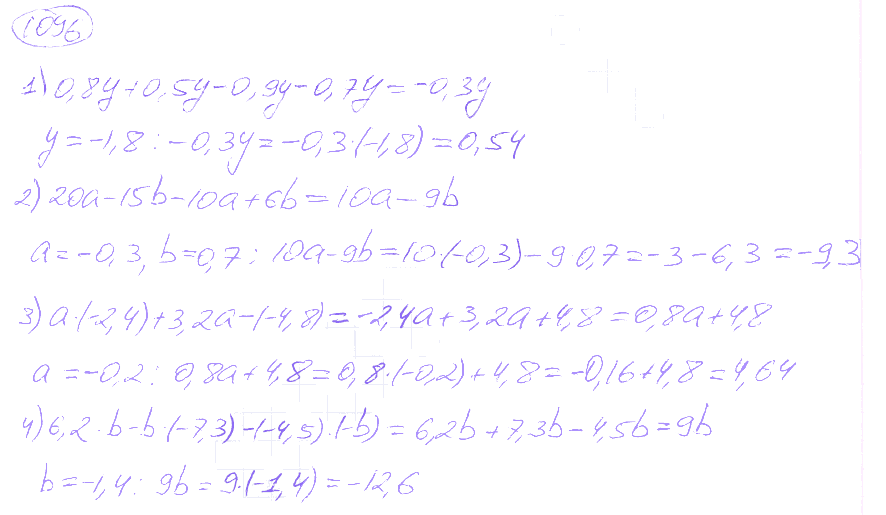 1096
1) 0,8y+0,5y-0,9y-0,7y=-0,3y
y=-1,8: -0,3y=-0,3·(-1,8)=0,54
2) 20a-15b-10a+6b=10a-9b
a=-0,3, b=0,7: 10a-9b=10·(-0,3)-9·0,7=-3-6,3=-9,3
3) a·(-2,4)+3,2a-(-4,8)=-2,4a+3,2a+4,8=0,8a+4,8
a=-0,2: 0,8a+4,8=0,8·(-0,2)+4,8=-0,16+4,8=4,64
4) 6,2·b-b·(-7,3)-(-4,5)·(-b)=6,2b+7,3b-4,5b=9b
b=-1,4: 9b=9·(-1,4)=-12,6